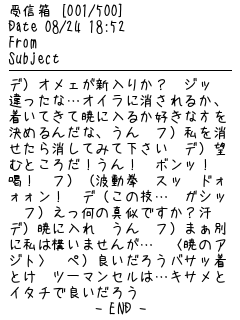 受信箱 [001/500]
Date 08/24 18:52
From
Subject
デ）オメェが新入りか？　ジッ
違ったな…オイラに消されるか、
着いてきて暁に入るか好きな方を
決めるんだな、うん　フ）私を消
せたら消してみて下さい　デ）望
むところだ！うん！　ボンッ！
喝！　フ）（波動拳　スッ　ドォ
ォォン！　デ（この技…　ガシッ
　フ）えっ何の真似ですか？汗
デ）暁に入れ　うん　フ）まぁ別
に私は構いませんが…　〈暁のア
ジト〉　ペ）良いだろうバサッ着
とけ　ツーマンセルは…キサメと
イタチで良いだろう
- END -